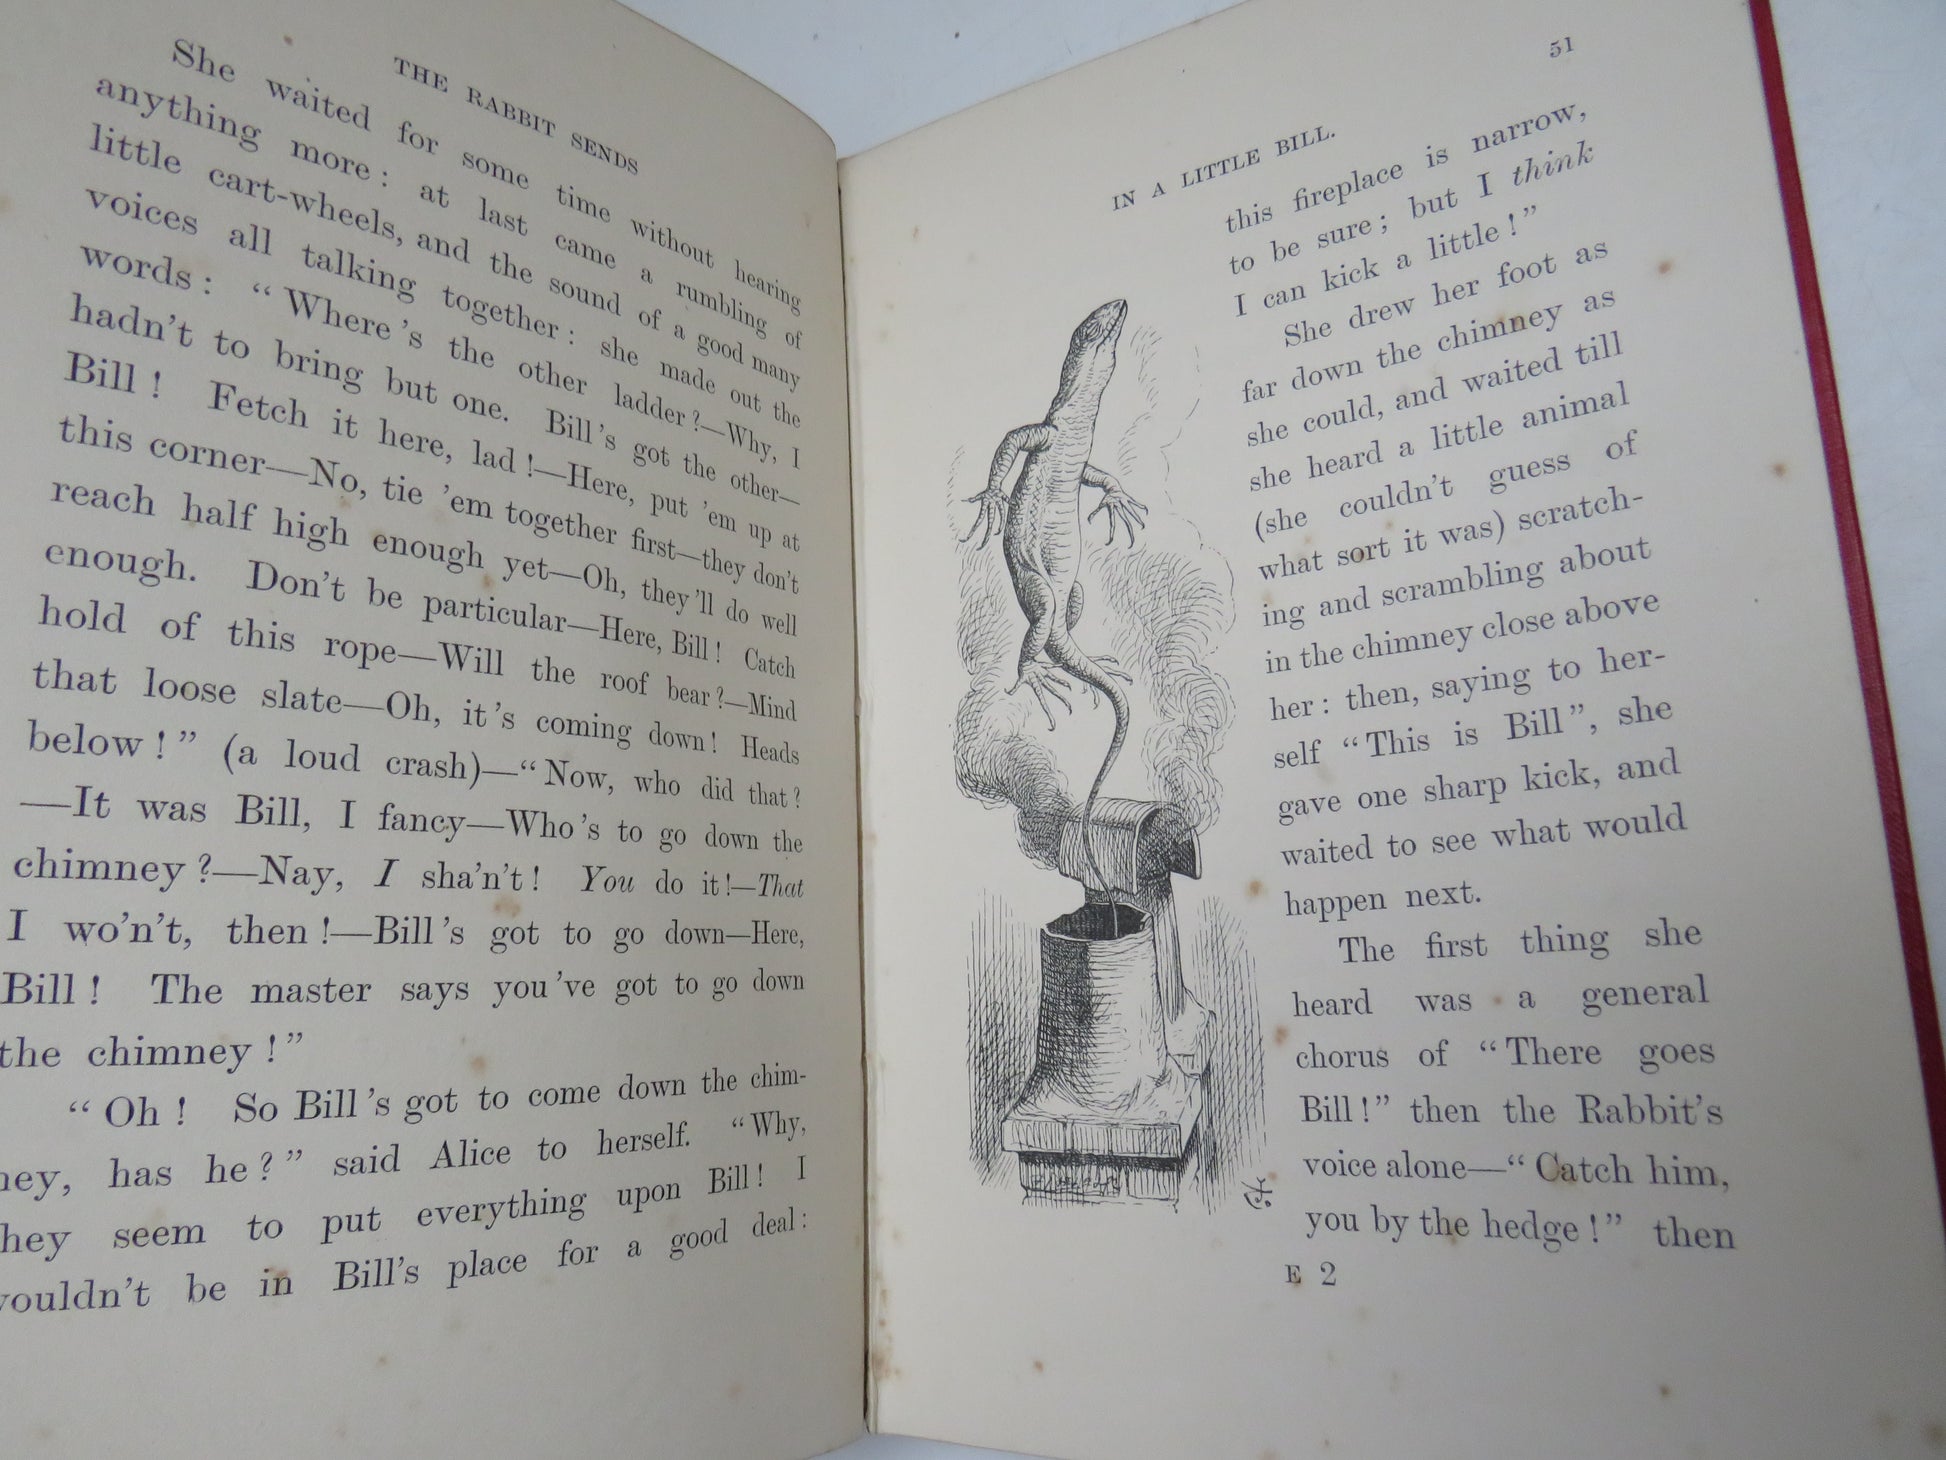 THE RABBIT SENDS
She waited for some time without hearing
anything more: at last came a rumbling of
little cart-wheels, and the sound of a good many
voices all talking together: she made out the
words: “Where's the other ladder?—Why, I
hadn't to bring but one. Bill's got the other—
Bill! Fetch it here, lad!—Here, put 'em up at
this corner—No, tie 'em together first—they don't
reach half high enough yet—Oh, they'll do well
enough. Don't be particular—Here, Bill! Catch
hold of this rope—Will the roof bear?—Mind
that loose slate—Oh, it's coming down! Heads
below!” (a loud crash)—“Now, who did that?
—It was Bill, I fancy—Who's to go down the
chimney?—Nay, I sha'n't! You do it!—That
I wo'n't, then!—Bill's got to go down—Here,
Bill! The master says you've got to go down
the chimney!”
“Oh! So Bill's got to come down the chim-
ney, has he?” said Alice to herself. “Why,
they seem to put everything upon Bill! I
wouldn't be in Bill's place for a good deal:
IN A LITTLE BILL. 51
this fireplace is narrow,
to be sure; but I think
I can kick a little!”
She drew her foot as
far down the chimney as
she could, and waited till
she heard a little animal
(she couldn't guess of
what sort it was) scratch-
ing and scrambling about
in the chimney close above
her: then, saying to her-
self “This is Bill”, she
gave one sharp kick, and
waited to see what would
happen next.
The first thing she
heard was a general
chorus of “There goes
Bill!” then the Rabbit's
voice alone—“Catch him,
you by the hedge!” then
E 2